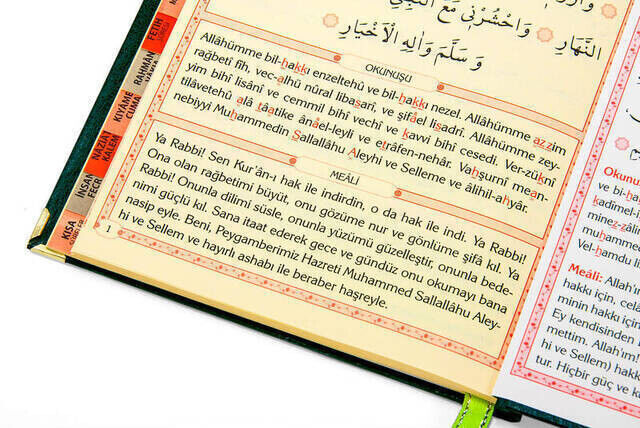 النَّهَارِ وَاحْشُرْنِي مَعَ النَّبِيِّ
وَسَلَّمَ وَاٰلِهِ الْاَخْيَارِ
OKUNUŞU
Allâhümme bil-hakkı enzeltehû ve bil-hakkı nezel. Allâhümme azzim
rağbetî fîh, vec-alhü nûral libasarî, ve şifâel lisadrî. Allâhümme zey-
yim bihî lisânî ve cemmil bihî vechî ve kavvi bihî cesedî. Ver-zükni
tilâvetehû alâ tâatike ânâel-leyli ve etrâfen-nehâr. Vahşurnî mean-
nebiyyi Muhammedin Sallallâhu Aleyhi ve Selleme ve âlihil-ahyâr.
MEÂLİ
Ya Rabbi! Sen Kur'ân-ı hak ile indirdin, o da hak ile indi. Ya Rabbi!
Ona olan rağbetimi büyüt, onu gözüme nur ve gönlüme şifâ kıl. Ya
Rabbi! Onunla dilimi süsle, onunla yüzümü güzelleştir, onunla bede-
nimi güçlü kıl. Sana itaat ederek gece ve gündüz onu okumayı bana
nasip eyle. Beni, Peygamberimiz Hazreti Muhammed Sallallâhu Aley-
hi ve Sellem ve hayırlı ashabı ile beraber haşreyle.
1
FETİH
RAHMÂN
KIYÂME
CUMA
NÂZİAT
KALEM
İNSAN
FECR
KISA
Okunu
ve bi-h
kadîmel
minez-zâli
muhamm
Vel-hamdu li
Meâli: Allah'ı
hakkı için, cel
minin hakkı için
Ey kendisinden
mettim. Allah'ım!
hi ve Sellem) hakkı
tur. Hiçbir güç ve k